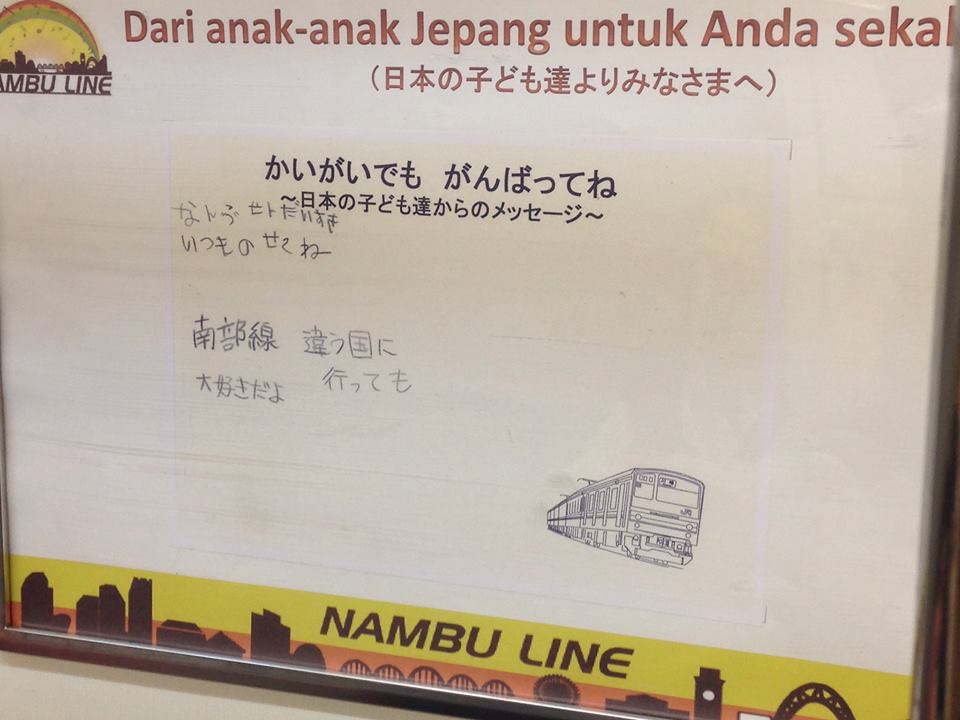 Dari anak-anak Jepang untuk Anda sekal
(日本の子ども達よりみなさまへ)
AMBU LINE
かいがいでも がんばってね
～日本の子ども達からのメッセージ～
なんぶ せんだいすき
いつものせてね
南部線 違う国に
大好きだよ 行っても
JR
NAMBU LINE